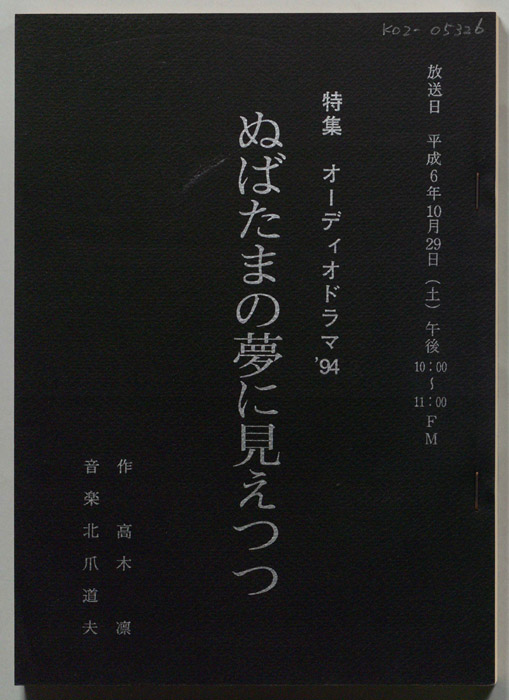 K02-05326
放送日 平成6年10月29日（土）午後10：00～11：00 FM
特集 オーディオドラマ'94
ぬばたまの夢に見えつつ
作 高木 凛
音楽 北爪道夫